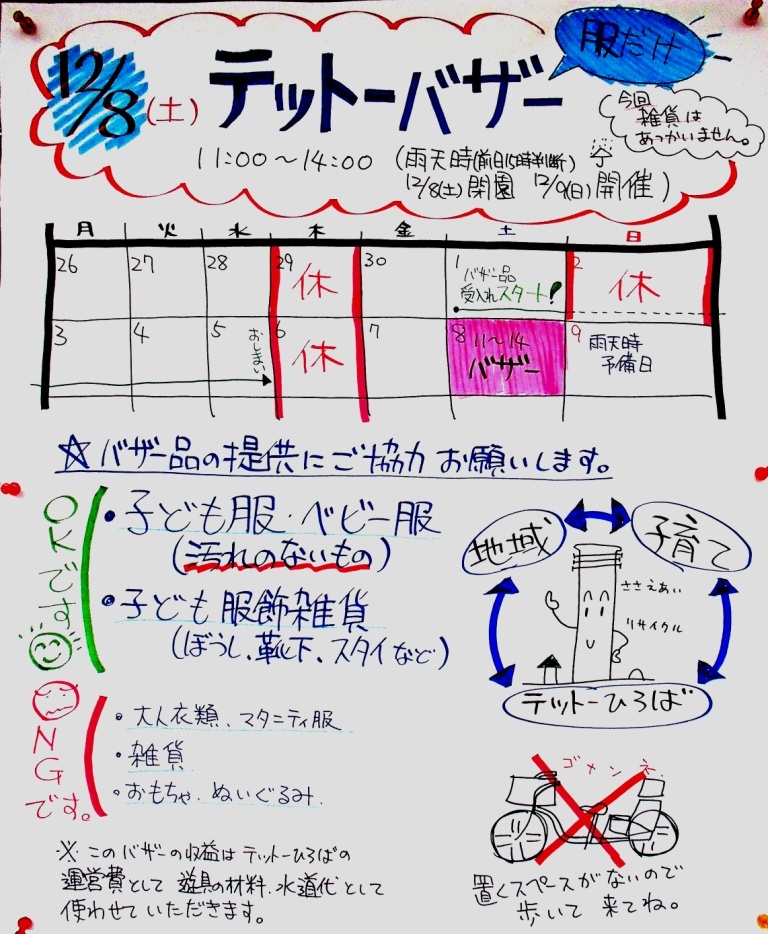 12/8(土) テットーバザー
服だけ
今回
雑貨は
あつかいません。
11:00〜14:00 (雨天時(前日15時半判断)
12/8(土)閉園 12/9(日)開催)
月 火 水 木 金 土 日
26 27 28 29 休 30 1 バザー品 2 休
受入れスタート!
3 4 5 おしまい 6 休 7 8 11〜14 9 雨天時
バザー 予備日
☆バザー品の提供にご協力お願いします。
OKです
・子ども服・ベビー服
(汚れのないもの)
・子ども服飾雑貨
(ぼうし、靴下、スタイなど)
地域 子育て
ささえあい
リサイクル
テットーひろば
NGです。
・大人衣類、マタニティ服
・雑貨
・おもちゃ、ぬいぐるみ
ゴメンネ
※このバザーの収益はテットーひろばの
運営費として 遊具の材料、水道代として
使わせていただきます。
置くスペースがないので
歩いて来てね。